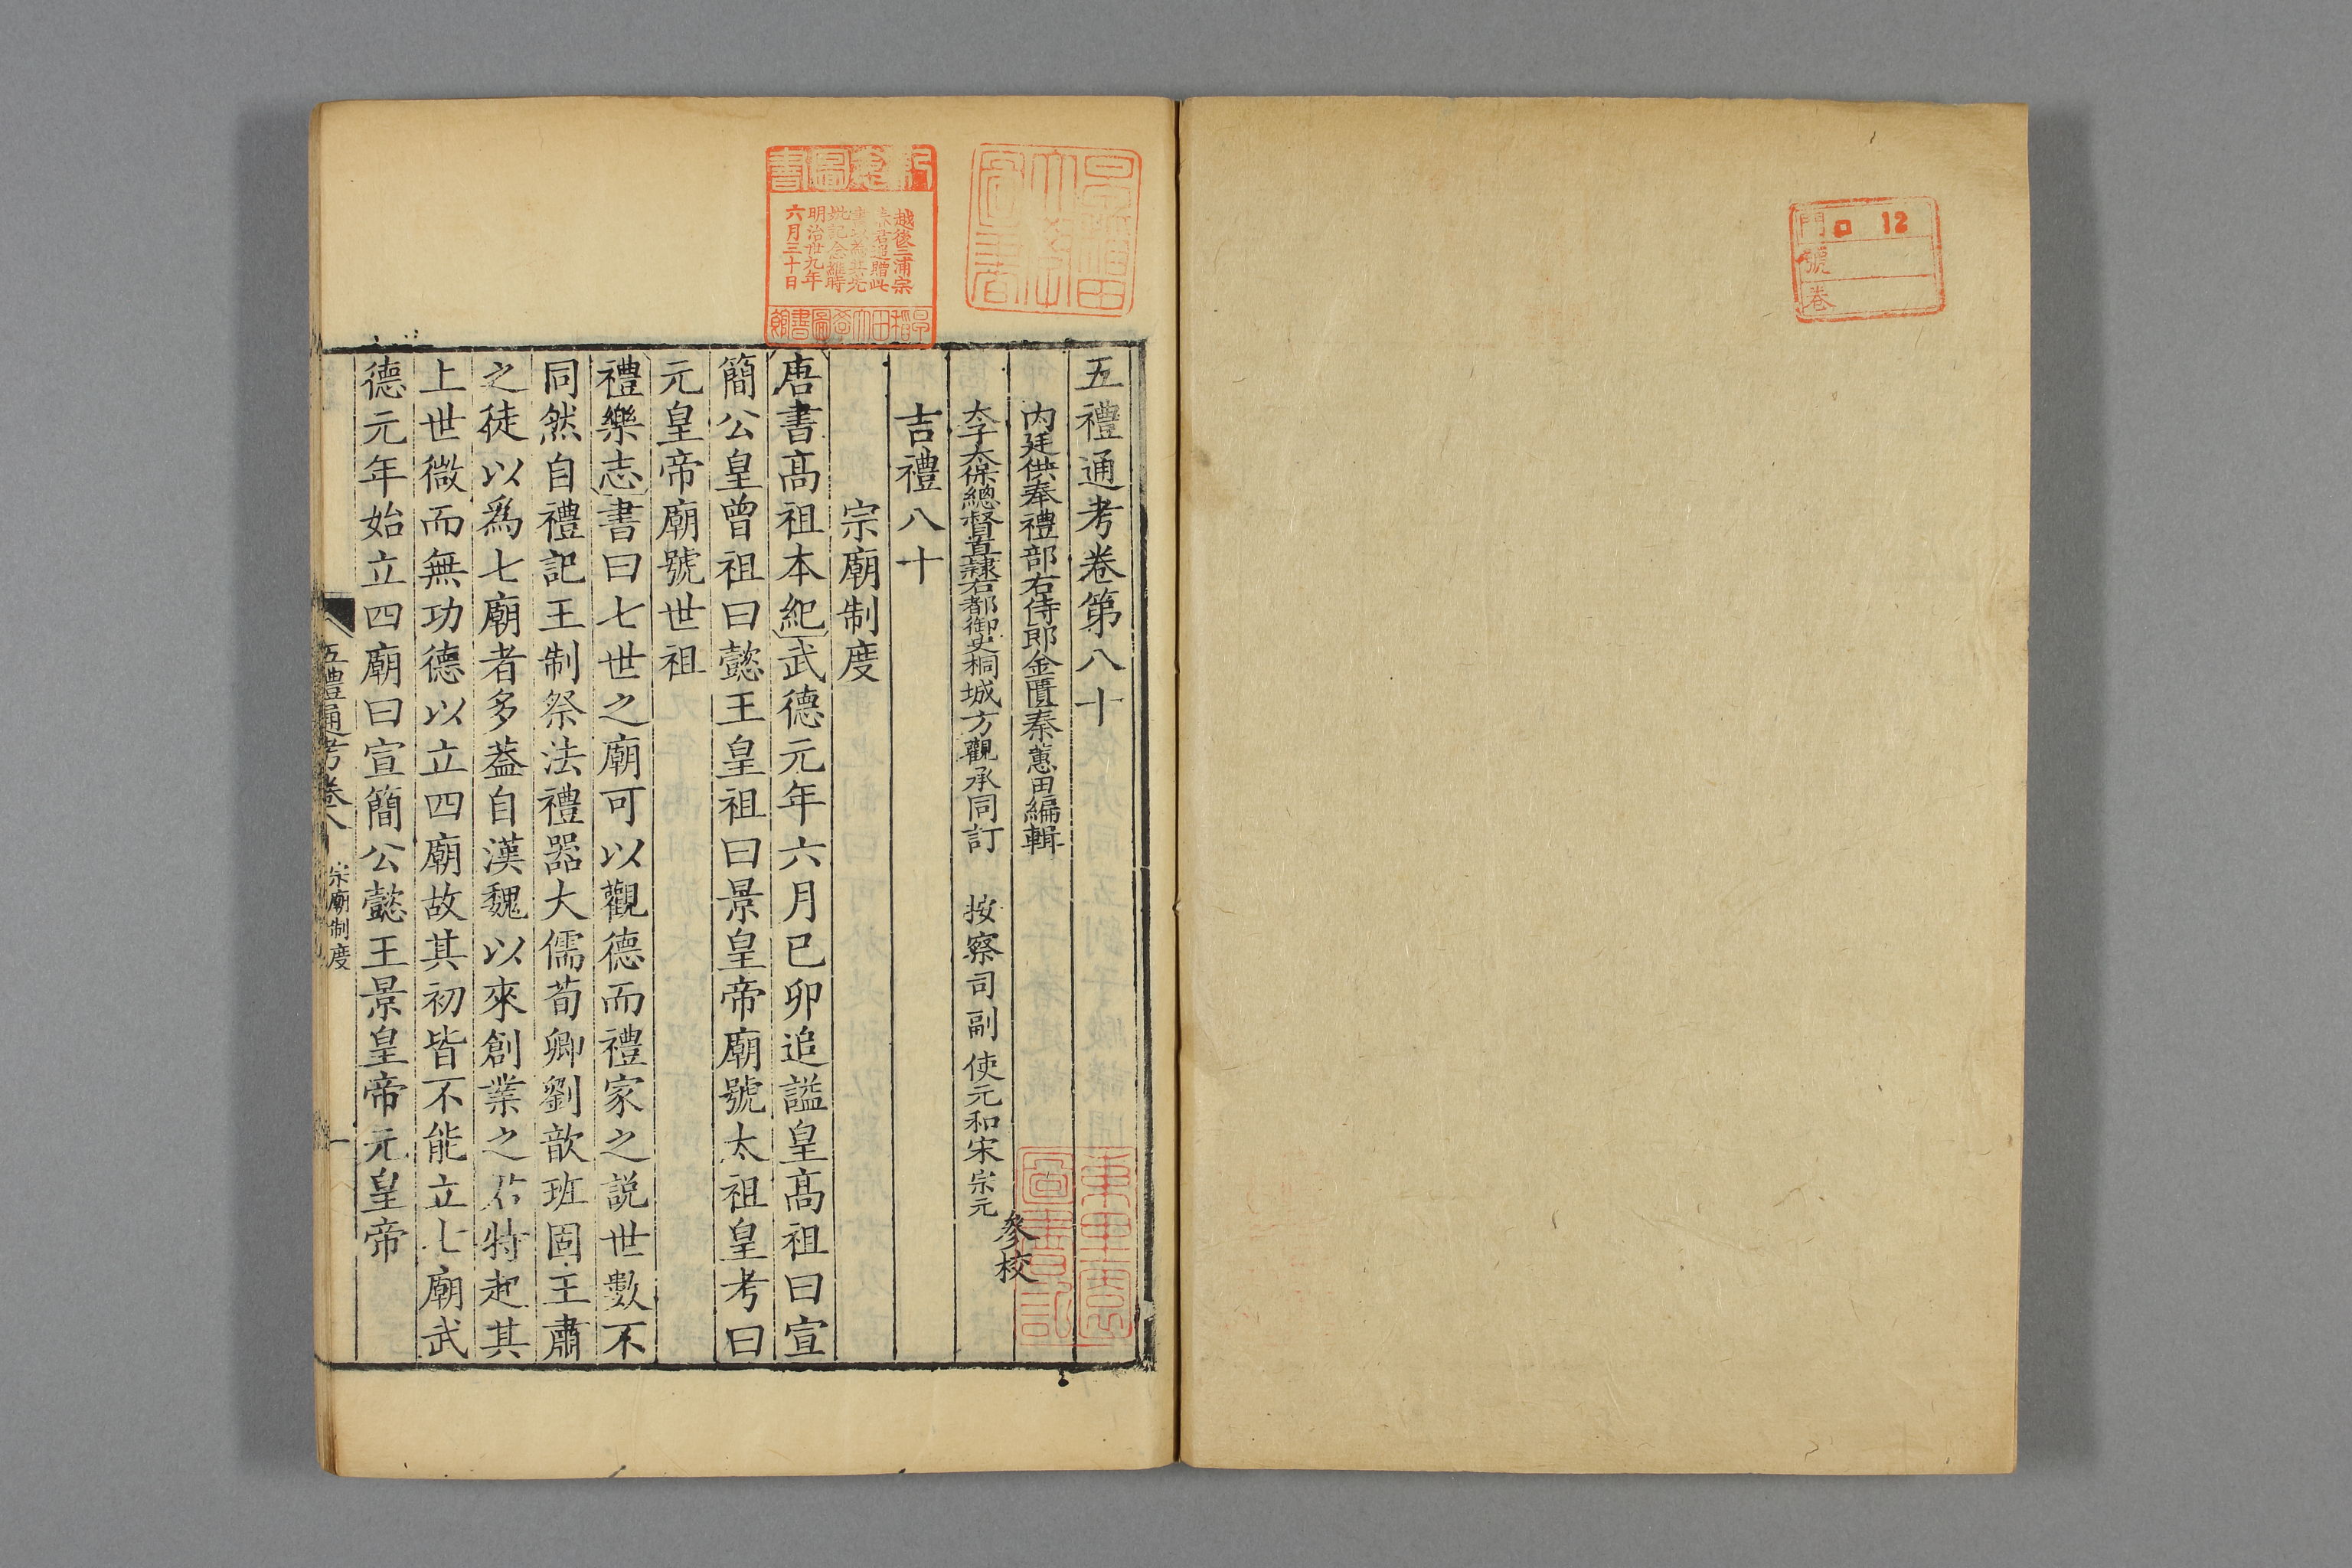 門 口 12
號
卷
五禮通考卷第八十
內廷供奉禮部右侍郎金匱秦蕙田編輯
太子太保總督直隸右都御史桐城方觀承同訂 按察司副使元和宋宗元
參校
吉禮八十
宗廟制度
唐書高祖本紀武德元年六月已卯追謚皇高祖曰宣
簡公皇曾祖曰懿王皇祖曰景皇帝廟號太祖皇考曰
元皇帝廟號世祖
禮樂志書曰七世之廟可以觀德而禮家之說世數不
同然自禮記王制祭法禮器大儒荀卿劉歆班固王肅
之徒以爲七廟者多葢自漢魏以來創業之君特起其
上世微而無功德以立四廟故其初皆不能立七廟武
德元年始立四廟曰宣簡公懿王景皇帝元皇帝
五禮通考卷八 宗廟制度 一
早稻田大學圖書
越後三浦宗
春君追贈此
明治卅九年
六月三十日
早稻田大學圖書館
圖書記